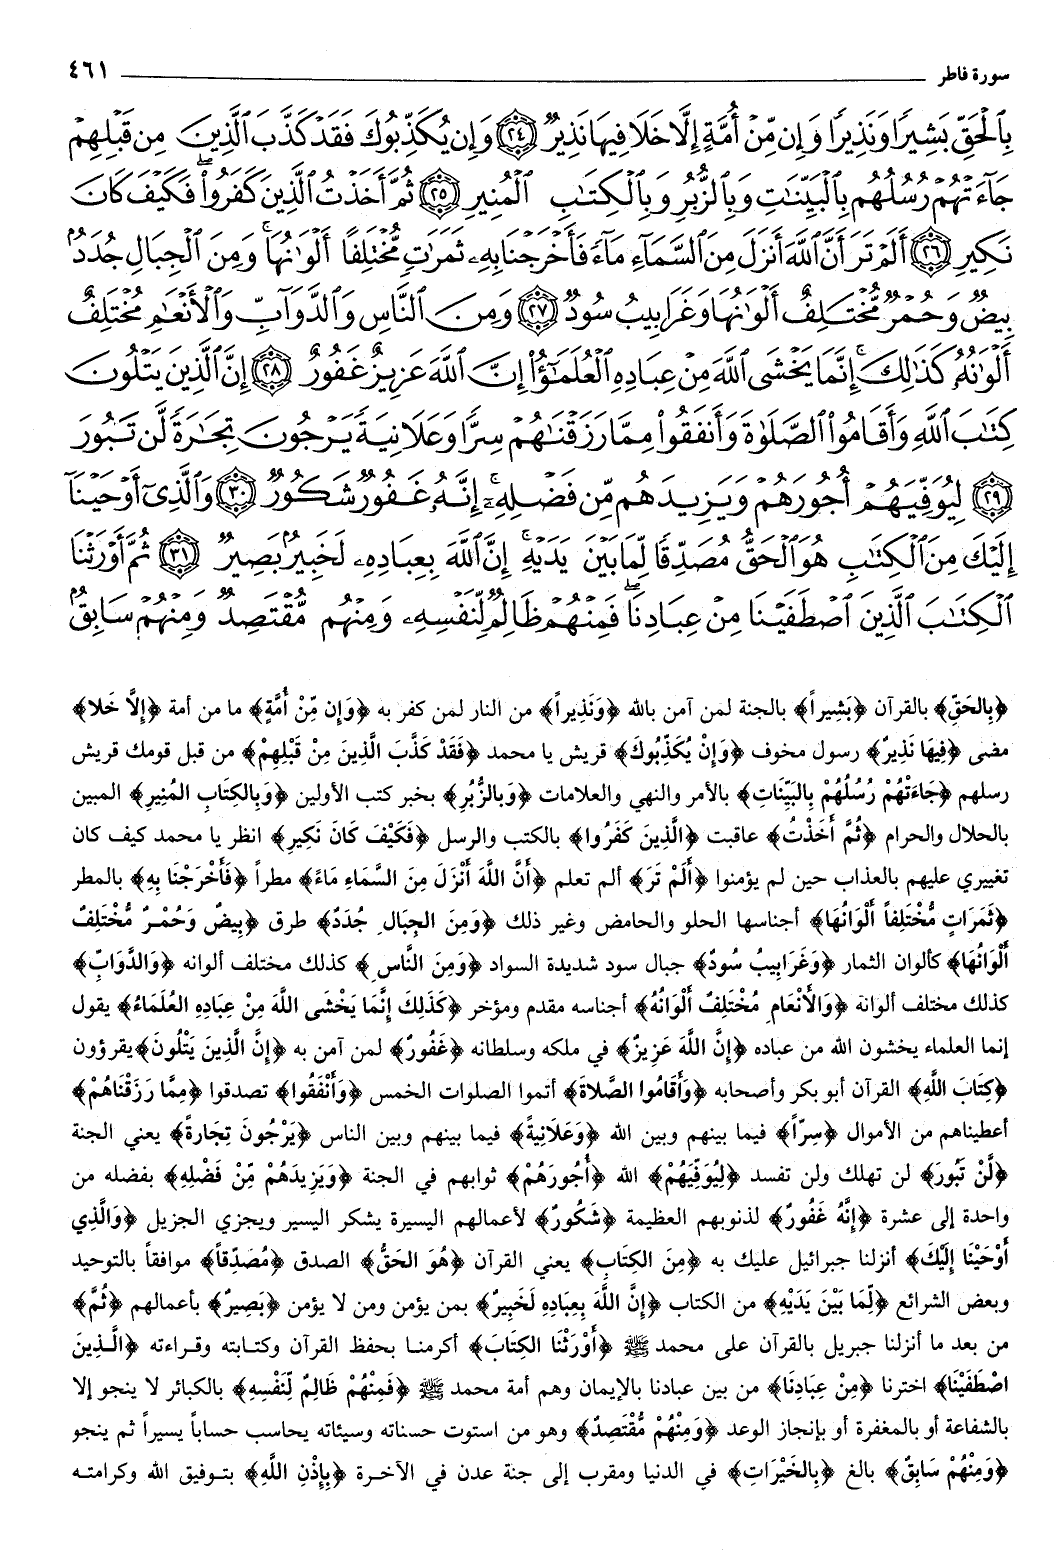 سورة فاطر ٤٦١
بِالْحَقِّ بَشِيرًا وَنَذِيرًا وَإِن مِّنْ أُمَّةٍ إِلَّا خَلَا فِيهَا نَذِيرٌ ﴿٢٤﴾ وَإِن يُكَذِّبُوكَ فَقَدْ كَذَّبَ الَّذِينَ مِن قَبْلِهِمْ
جَاءَتْهُمْ رُسُلُهُم بِالْبَيِّنَاتِ وَبِالزُّبُرِ وَبِالْكِتَابِ الْمُنِيرِ ﴿٢٥﴾ ثُمَّ أَخَذْتُ الَّذِينَ كَفَرُوا ۖ فَكَيْفَ كَانَ
نَكِيرِ ﴿٢٦﴾ أَلَمْ تَرَ أَنَّ اللَّهَ أَنزَلَ مِنَ السَّمَاءِ مَاءً فَأَخْرَجْنَا بِهِ ثَمَرَاتٍ مُّخْتَلِفًا أَلْوَانُهَا ۚ وَمِنَ الْجِبَالِ جُدَدٌ
بِيضٌ وَحُمْرٌ مُّخْتَلِفٌ أَلْوَانُهَا وَغَرَابِيبُ سُودٌ ﴿٢٧﴾ وَمِنَ النَّاسِ وَالدَّوَابِّ وَالْأَنْعَامِ مُخْتَلِفٌ
أَلْوَانُهُ كَذَٰلِكَ ۗ إِنَّمَا يَخْشَى اللَّهَ مِنْ عِبَادِهِ الْعُلَمَاءُ إِنَّ اللَّهَ عَزِيزٌ غَفُورٌ ﴿٢٨﴾ إِنَّ الَّذِينَ يَتْلُونَ
كِتَابَ اللَّهِ وَأَقَامُوا الصَّلَاةَ وَأَنفَقُوا مِمَّا رَزَقْنَاهُمْ سِرًّا وَعَلَانِيَةً يَرْجُونَ تِجَارَةً لَّن تَبُورَ
﴿٢٩﴾ لِيُوَفِّيَهُمْ أُجُورَهُمْ وَيَزِيدَهُم مِّن فَضْلِهِ ۚ إِنَّهُ غَفُورٌ شَكُورٌ ﴿٣٠﴾ وَالَّذِي أَوْحَيْنَا
إِلَيْكَ مِنَ الْكِتَابِ هُوَ الْحَقُّ مُصَدِّقًا لِّمَا بَيْنَ يَدَيْهِ ۗ إِنَّ اللَّهَ بِعِبَادِهِ لَخَبِيرٌ بَصِيرٌ ﴿٣١﴾ ثُمَّ أَوْرَثْنَا
الْكِتَابَ الَّذِينَ اصْطَفَيْنَا مِنْ عِبَادِنَا ۖ فَمِنْهُمْ ظَالِمٌ لِّنَفْسِهِ وَمِنْهُم مُّقْتَصِدٌ وَمِنْهُمْ سَابِقٌ
﴿بِالحَقِّ﴾ بالقرآن ﴿بَشِيراً﴾ بالجنة لمن آمن بالله ﴿وَنَذِيراً﴾ من النار لمن كفر به ﴿وَإِن مِّنْ أُمَّةٍ﴾ ما من أمة ﴿إِلَّا خَلا﴾
مضى ﴿فِيهَا نَذِيرٌ﴾ رسول مخوف ﴿وَإِنْ يُكَذِّبُوكَ﴾ قريش يا محمد ﴿فَقَدْ كَذَّبَ الَّذِينَ مِنْ قَبْلِهِمْ﴾ من قبل قومك قريش
رسلهم ﴿جَاءَتْهُمْ رُسُلُهُمْ بِالبَيِّنَاتِ﴾ بالأمر والنهي والعلامات ﴿وَبالزُّبُرِ﴾ بخبر كتب الأولين ﴿وَبِالكِتَابِ المُنِيرِ﴾ المبين
بالحلال والحرام ﴿ثُمَّ أَخَذْتُ﴾ عاقبت ﴿الَّذِينَ كَفَرُوا﴾ بالكتب والرسل ﴿فَكَيْفَ كَانَ نَكِيرِ﴾ انظر يا محمد كيف كان
تغييري عليهم بالعذاب حين لم يؤمنوا ﴿أَلَمْ تَرَ﴾ ألم تعلم ﴿أَنَّ اللَّهَ أَنْزَلَ مِنَ السَّمَاءِ مَاءً﴾ مطراً ﴿فَأَخْرَجْنَا بِهِ﴾ بالمطر
﴿ثَمَرَاتٍ مُّخْتَلِفاً أَلْوَانُهَا﴾ أجناسها الحلو والحامض وغير ذلك ﴿وَمِنَ الجِبَالِ جُدَدٌ﴾ طرق ﴿بِيضٌ وَحُمْرٌ مُّخْتَلِفٌ
أَلْوَانُهَا﴾ كألوان الثمار ﴿وَغَرَابِيبُ سُودٌ﴾ جبال سود شديدة السواد ﴿وَمِنَ النَّاسِ﴾ كذلك مختلف ألوانه ﴿وَالدَّوَابِّ﴾
كذلك مختلف ألوانه ﴿وَالأَنْعَامِ مُخْتَلِفٌ أَلْوَانُهُ﴾ أجناسه مقدم ومؤخر ﴿كَذَلِكَ إِنَّمَا يَخْشَى اللَّهَ مِنْ عِبَادِهِ العُلَمَاءُ﴾ يقول
إنما العلماء يخشون الله من عباده ﴿إِنَّ اللَّهَ عَزِيزٌ﴾ في ملكه وسلطانه ﴿غَفُورٌ﴾ لمن آمن به ﴿إِنَّ الَّذِينَ يَتْلُونَ﴾ يقرؤون
﴿كِتَابَ اللَّهِ﴾ القرآن أبو بكر وأصحابه ﴿وَأَقَامُوا الصَّلاةَ﴾ أتموا الصلوات الخمس ﴿وَأَنْفَقُوا﴾ تصدقوا ﴿مِمَّا رَزَقْنَاهُمْ﴾
أعطيناهم من الأموال ﴿سِرّاً﴾ فيما بينهم وبين الله ﴿وَعَلَانِيةً﴾ فيما بينهم وبين الناس ﴿يَرْجُونَ تِجَارةً﴾ يعني الجنة
﴿لَّنْ تَبُورَ﴾ لن تهلك ولن تفسد ﴿لِيُوَفِّيَهُمْ﴾ الله ﴿أُجُورَهُمْ﴾ ثوابهم في الجنة ﴿وَيَزِيدَهُمْ مِّنْ فَضْلِهِ﴾ بفضله من
واحدة إلى عشرة ﴿إِنَّهُ غَفُورٌ﴾ لذنوبهم العظيمة ﴿شَكُورٌ﴾ لأعمالهم اليسيرة يشكر اليسير ويجزي الجزيل ﴿وَالَّذِي
أَوْحَيْنَا إِلَيْكَ﴾ أنزلنا جبرائيل عليك به ﴿مِنَ الكِتَابِ﴾ يعني القرآن ﴿هُوَ الحَقُّ﴾ الصدق ﴿مُصَدِّقاً﴾ موافقاً بالتوحيد
وبعض الشرائع ﴿لِّمَا بَيْنَ يَدَيْهِ﴾ من الكتاب ﴿إِنَّ اللَّهَ بِعِبَادِهِ لَخَبِيرٌ﴾ بمن يؤمن ومن لا يؤمن ﴿بَصِيرٌ﴾ بأعمالهم ﴿ثُمَّ﴾
من بعد ما أنزلنا جبريل بالقرآن على محمد ﷺ ﴿أَوْرَثْنَا الكِتَابَ﴾ أكرمنا بحفظ القرآن وكتابته وقراءته ﴿الَّذِينَ
اصْطَفَيْنَا﴾ اخترنا ﴿مِنْ عِبَادِنَا﴾ من بين عبادنا بالإيمان وهم أمة محمد ﷺ ﴿فَمِنْهُمْ ظَالِمٌ لِّنَفْسِهِ﴾ بالكبائر لا ينجو إلا
بالشفاعة أو بالمغفرة أو بإنجاز الوعد ﴿وَمِنْهُمْ مُّقْتَصِدٌ﴾ وهو من استوت حسناته وسيئاته يحاسب حساباً يسيراً ثم ينجو
﴿وَمِنْهُمْ سَابِقٌ﴾ بالغ ﴿بِالخَيْرَاتِ﴾ في الدنيا ومقرب إلى جنة عدن في الآخرة ﴿بِإِذْنِ اللَّهِ﴾ بتوفيق الله وكرامته